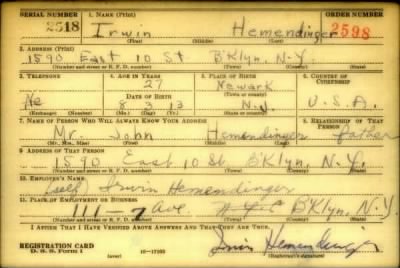 SERIAL NUMBER 1. NAME (Print) ORDER NUMBER
2518 Irwin Hemendinger 2598
(First) (Middle) (Last)
2. ADDRESS (Print)
1590 East 10 St B'Klyn. N.Y.
(Number and street or R. F. D. number) (Town) (County) (State)
3. TELEPHONE 4. AGE IN YEARS 5. PLACE OF BIRTH 6. COUNTRY OF CITIZENSHIP
27 Newark
DATE OF BIRTH (Town or county)
No 8 3 13 N.J. U.S.A.
(Exchange) (Number) (Mo.) (Day) (Yr.) (State or country)
7. NAME OF PERSON WHO WILL ALWAYS KNOW YOUR ADDRESS 8. RELATIONSHIP OF THAT PERSON
Mr. John Hemendinger father
(Mr., Mrs., Miss) (First) (Middle) (Last)
9. ADDRESS OF THAT PERSON
1590 East 10 St B'Klyn, N.Y.
(Number and street or R. F. D. number) (Town) (County) (State)
10. EMPLOYER'S NAME
(self) Irwin Hemendinger
11. PLACE OF EMPLOYMENT OR BUSINESS
111-7 Ave. B'Klyn, N.Y.
(Number and street or R. F. D. number) (Town) (County) (State)
I AFFIRM THAT I HAVE VERIFIED ABOVE ANSWERS AND THAT THEY ARE TRUE.
REGISTRATION CARD
D. S. S. Form 1 (over) 16-17105 Irwin Hemendinger
(Registrant's signature)